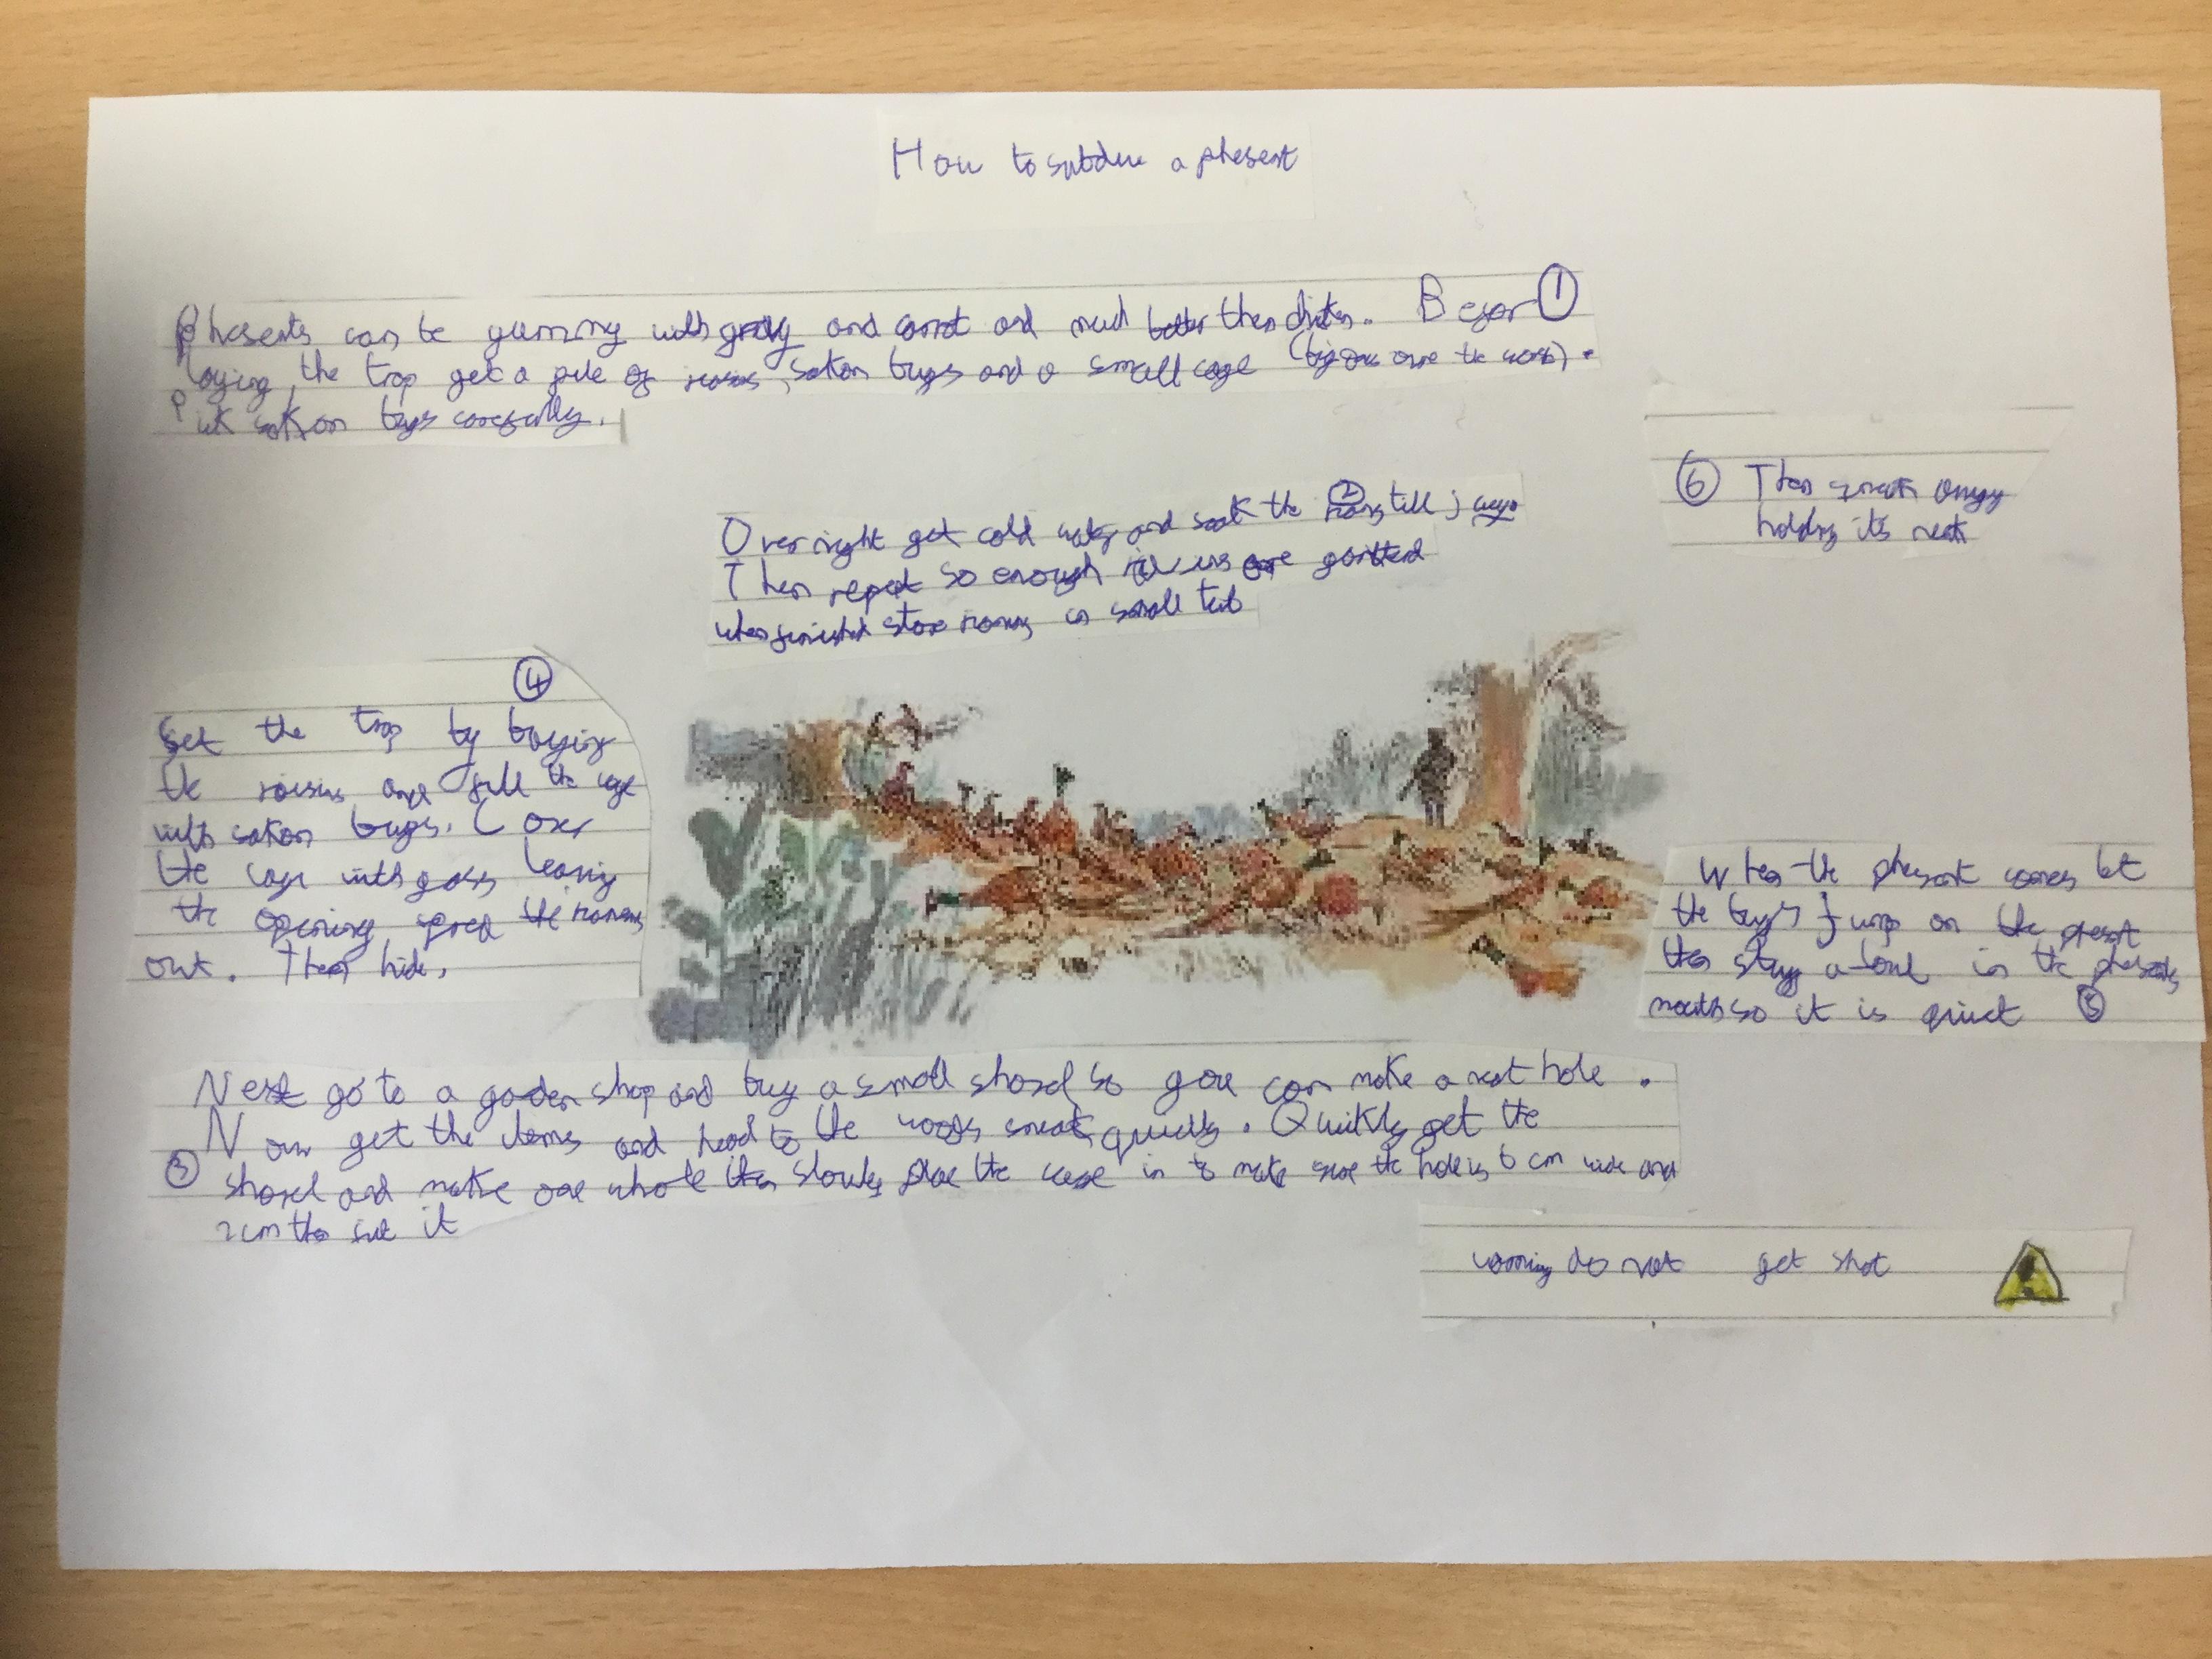 How to subdue a phesent
Phesents can be yummy with gravy and carrot and much better then. Befor ①
laying the trap get a pile of, sation bugs and a small cage (big ones are the worst).
Pick sation bugs carefully.
②
Over night get cold water and soak the till juicy
Then repeat so enough are
when finished store in small tub
③
Next go to a garden shop and buy a small shovel so you can make a neat hole.
Now get the items and head to the woods quickly. Quikly get the
shovel and make one whole then slowly place the cage in to make sure the hole is 6 cm wide and
2cm then it
④
Set the trap by
the raisins and fill the cage
with sation bugs. Cover
the cage with leaving
the opening the
out. Then hide.
When the phesent comes let
the bugs jump on the phesent
then a in the phesents
mouth so it is quiet ⑤
⑥ Then away
holding its neck
warning do not get shot